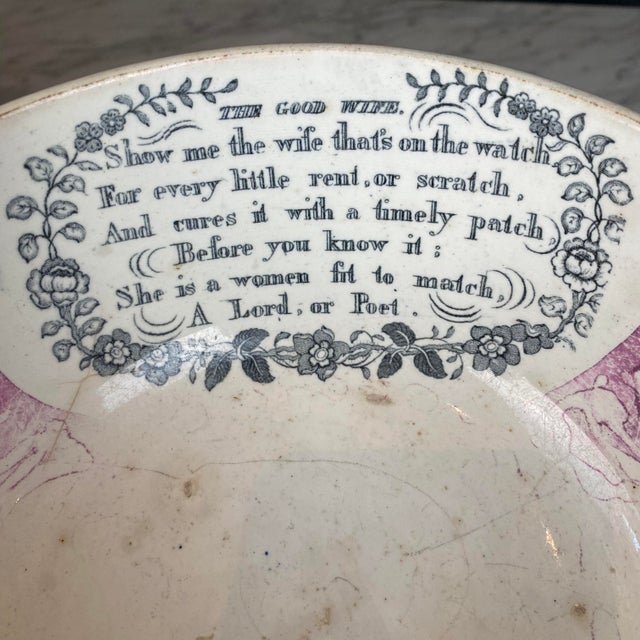 THE GOOD WIFE.
Show me the wife that's on the watch
For every little rent, or scratch,
And cures it with a timely patch,
Before you know it;
She is a women fit to match,
A Lord, or Poet.